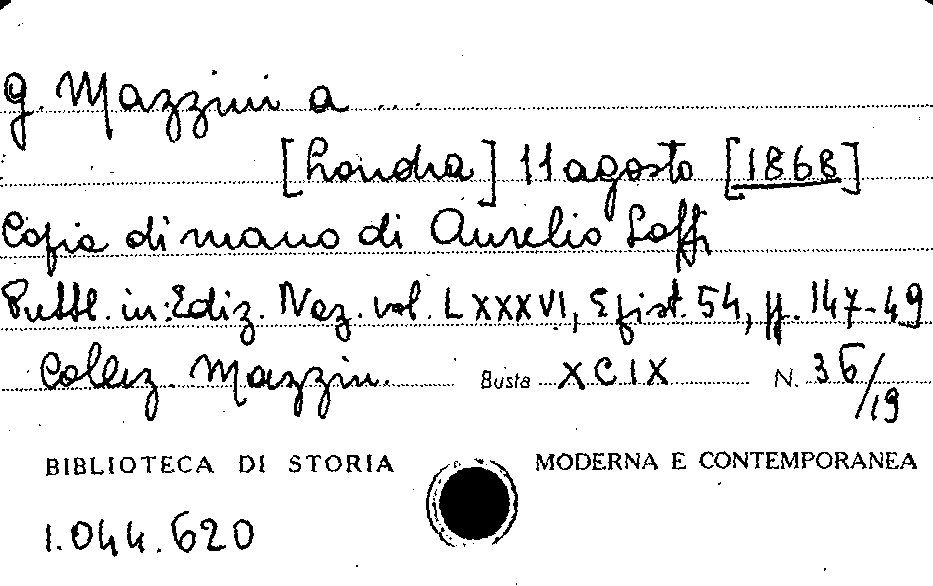 G. Mazzini a ...
[Londra] 11 agosto [1868]
Copia di mano di Aurelio Saffi
Pubbl. in: Ediz. Naz. vol. LXXXVI, Epist. 54, pp. 147-49
Collez. Mazzin. Busta XCIX N. 36/19
BIBLIOTECA DI STORIA MODERNA E CONTEMPORANEA
1.044.620